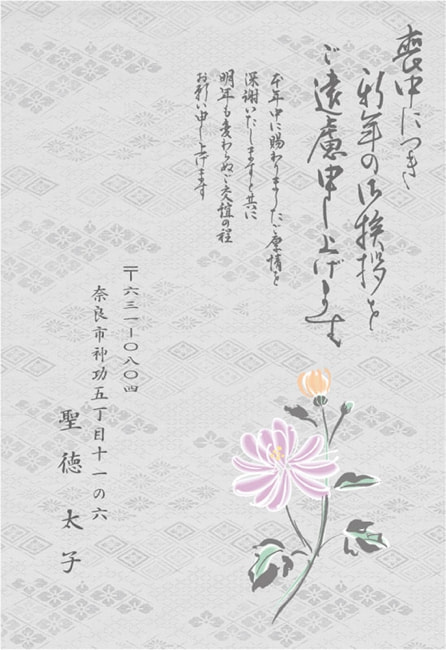 喪中につき
新年の御挨拶を
ご遠慮申し上げます
本年中に賜わりましたご厚情を
深謝いたしますと共に
明年も変わらぬご交誼の程
お願い申し上げます
〒六三一-〇八〇四
奈良市神功五丁目十一の六
聖徳太子